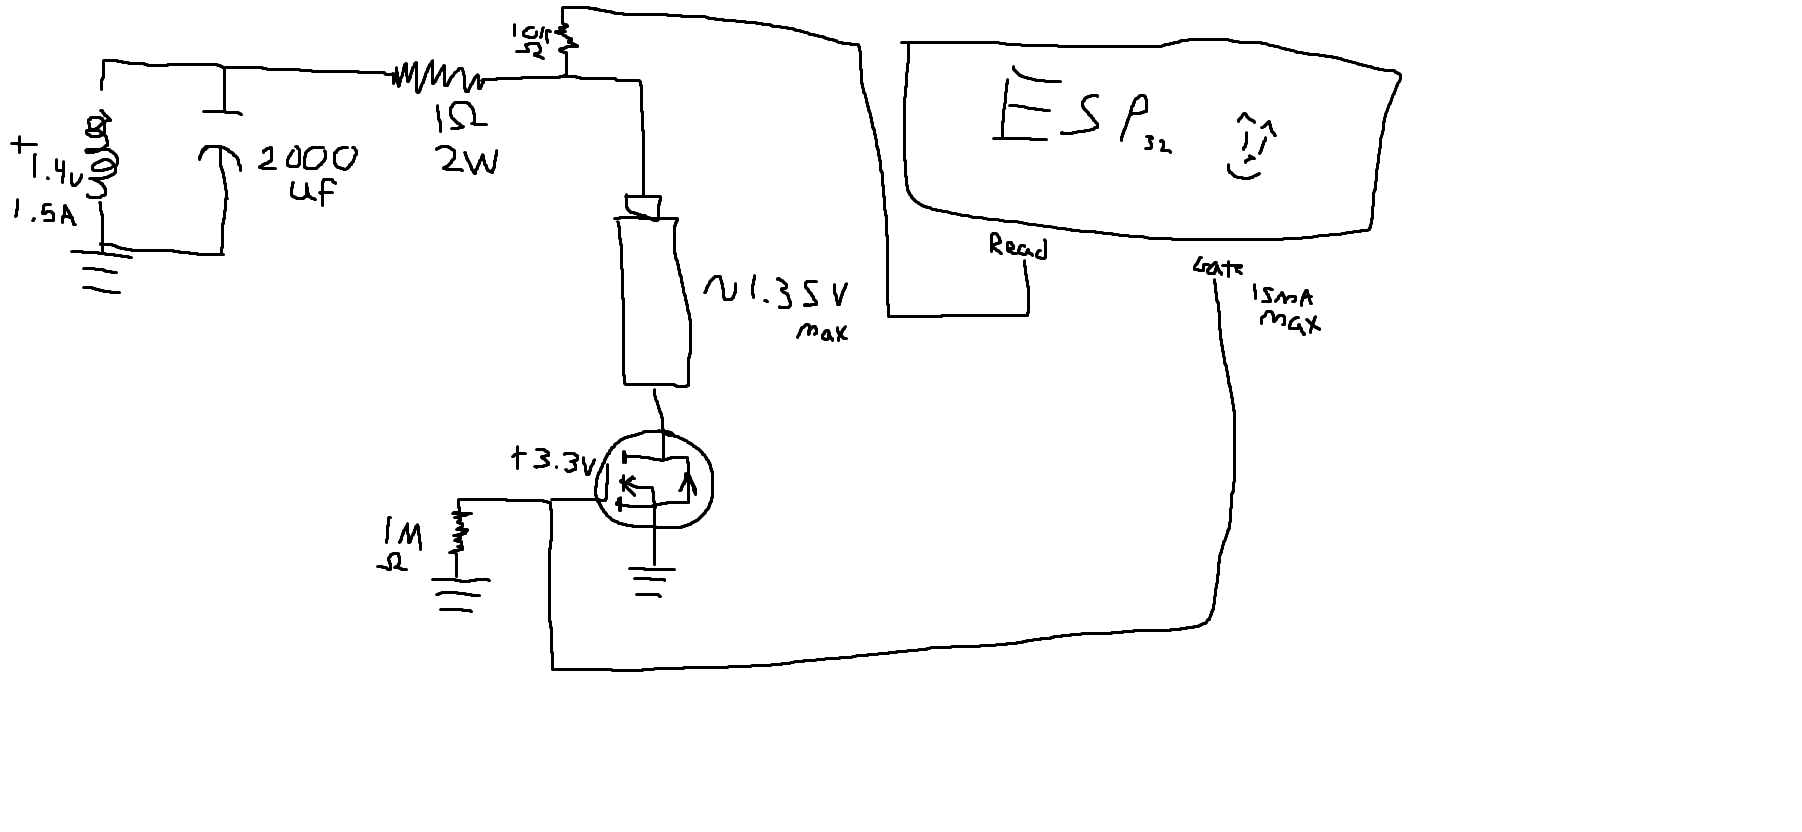 10K
Ω
ESP32
+
1.4v
1.5A
2000
uf
1Ω
2W
Read
Gate
15mA
max
~1.35V
max
+3.3v
1M
Ω